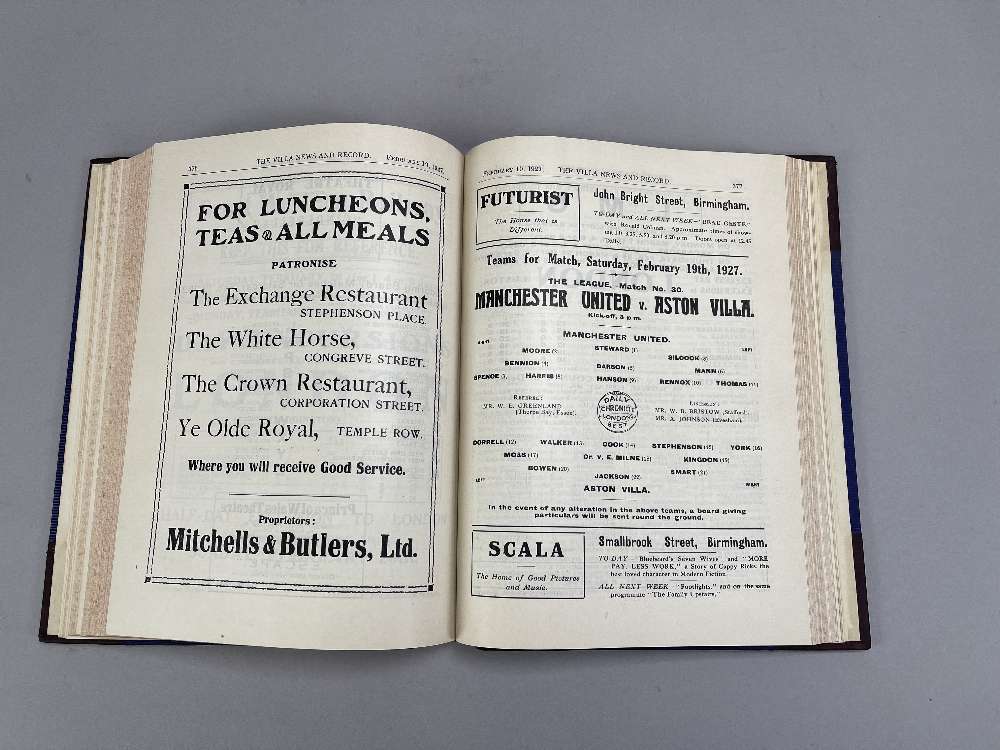 THE VILLA NEWS AND RECORD.
FOR LUNCHEONS,
TEAS & ALL MEALS
PATRONISE
The Exchange Restaurant
STEPHENSON PLACE.
The White Horse,
CONGREVE STREET.
The Crown Restaurant,
CORPORATION STREET.
Ye Olde Royal, TEMPLE ROW.
Where you will receive Good Service.
Proprietors:
Mitchells & Butlers, Ltd.
THE VILLA NEWS AND RECORD. 577
FUTURIST
The House that is
Different.
John Bright Street, Birmingham.
TO-DAY and ALL NEXT WEEK—"BEAU GESTE,"
with Ronald Colman. Approximate times of show-
Doors open at 12.45
Daily.
Teams for Match, Saturday, February 19th, 1927.
THE LEAGUE. Match No. 30.
MANCHESTER UNITED v. ASTON VILLA.
Kick-off, 3 p.m.
MANCHESTER UNITED.
MOORE (2) STEWARD (1) SILCOCK (3)
BENNION (4) BARSON (5) MANN (6)
SPENCE HARRIS (8) HANSON (9) RENNOX (10) THOMAS (11)
Referee:
MR. W. E. GREENLAND
(Thorpe Bay, Essex).
DAILY
CHRONICLE
LONDON'S
BEST
Linesmen:
MR. W. B. BRISTOW (Stafford).
MR. A. JOHNSON (Evesham).
DORRELL (12) WALKER (13) COOK (14) STEPHENSON (15) YORK (16)
MOSS (17) Dr. V. E. MILNE (18) KINGDON (19)
BOWEN (20) JACKSON (22) SMART (21)
LEFT ASTON VILLA. RIGHT
In the event of any alteration in the above teams, a board giving
particulars will be sent round the ground.
SCALA
The Home of Good Pictures
and Music.
Smallbrook Street, Birmingham.
TO-DAY—"Bluebeard's Seven Wives" and "MORE
PAY, LESS WORK," a Story of Cappy Ricks the
best loved character in Modern Fiction.
ALL NEXT WEEK—"Footlights," and on the same
programme "The Family Upstairs."